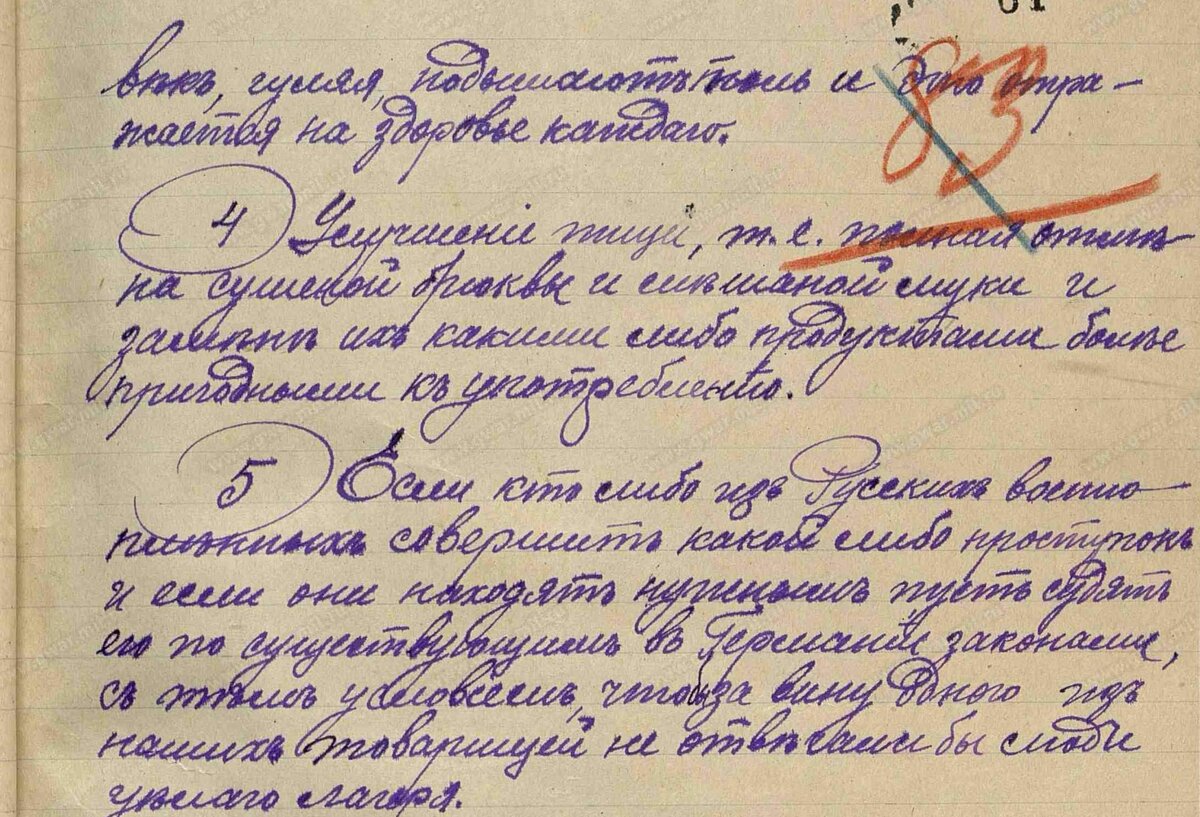 61
83
вѣкъ, гуляя, подымаютъ пыль и это отра-
жается на здоровье каждаго.
4 Улучшенiе пищи, т. е. полная отмѣ-
на сушеной брюквы и смѣшаной муки и
замѣны ихъ какими либо продуктами болѣе
пригодными къ употребленiю.
5 Если кто либо изъ Русскихъ военно-
плѣнныхъ совершитъ какой либо проступокъ
и если они находятъ нужнымъ пусть судятъ
его по существующимъ въ Германiи законами,
съ тѣмъ условiемъ, чтобы за вину одного изъ
нашихъ товарищей не отвѣчали бы люди
цѣлаго лагеря.